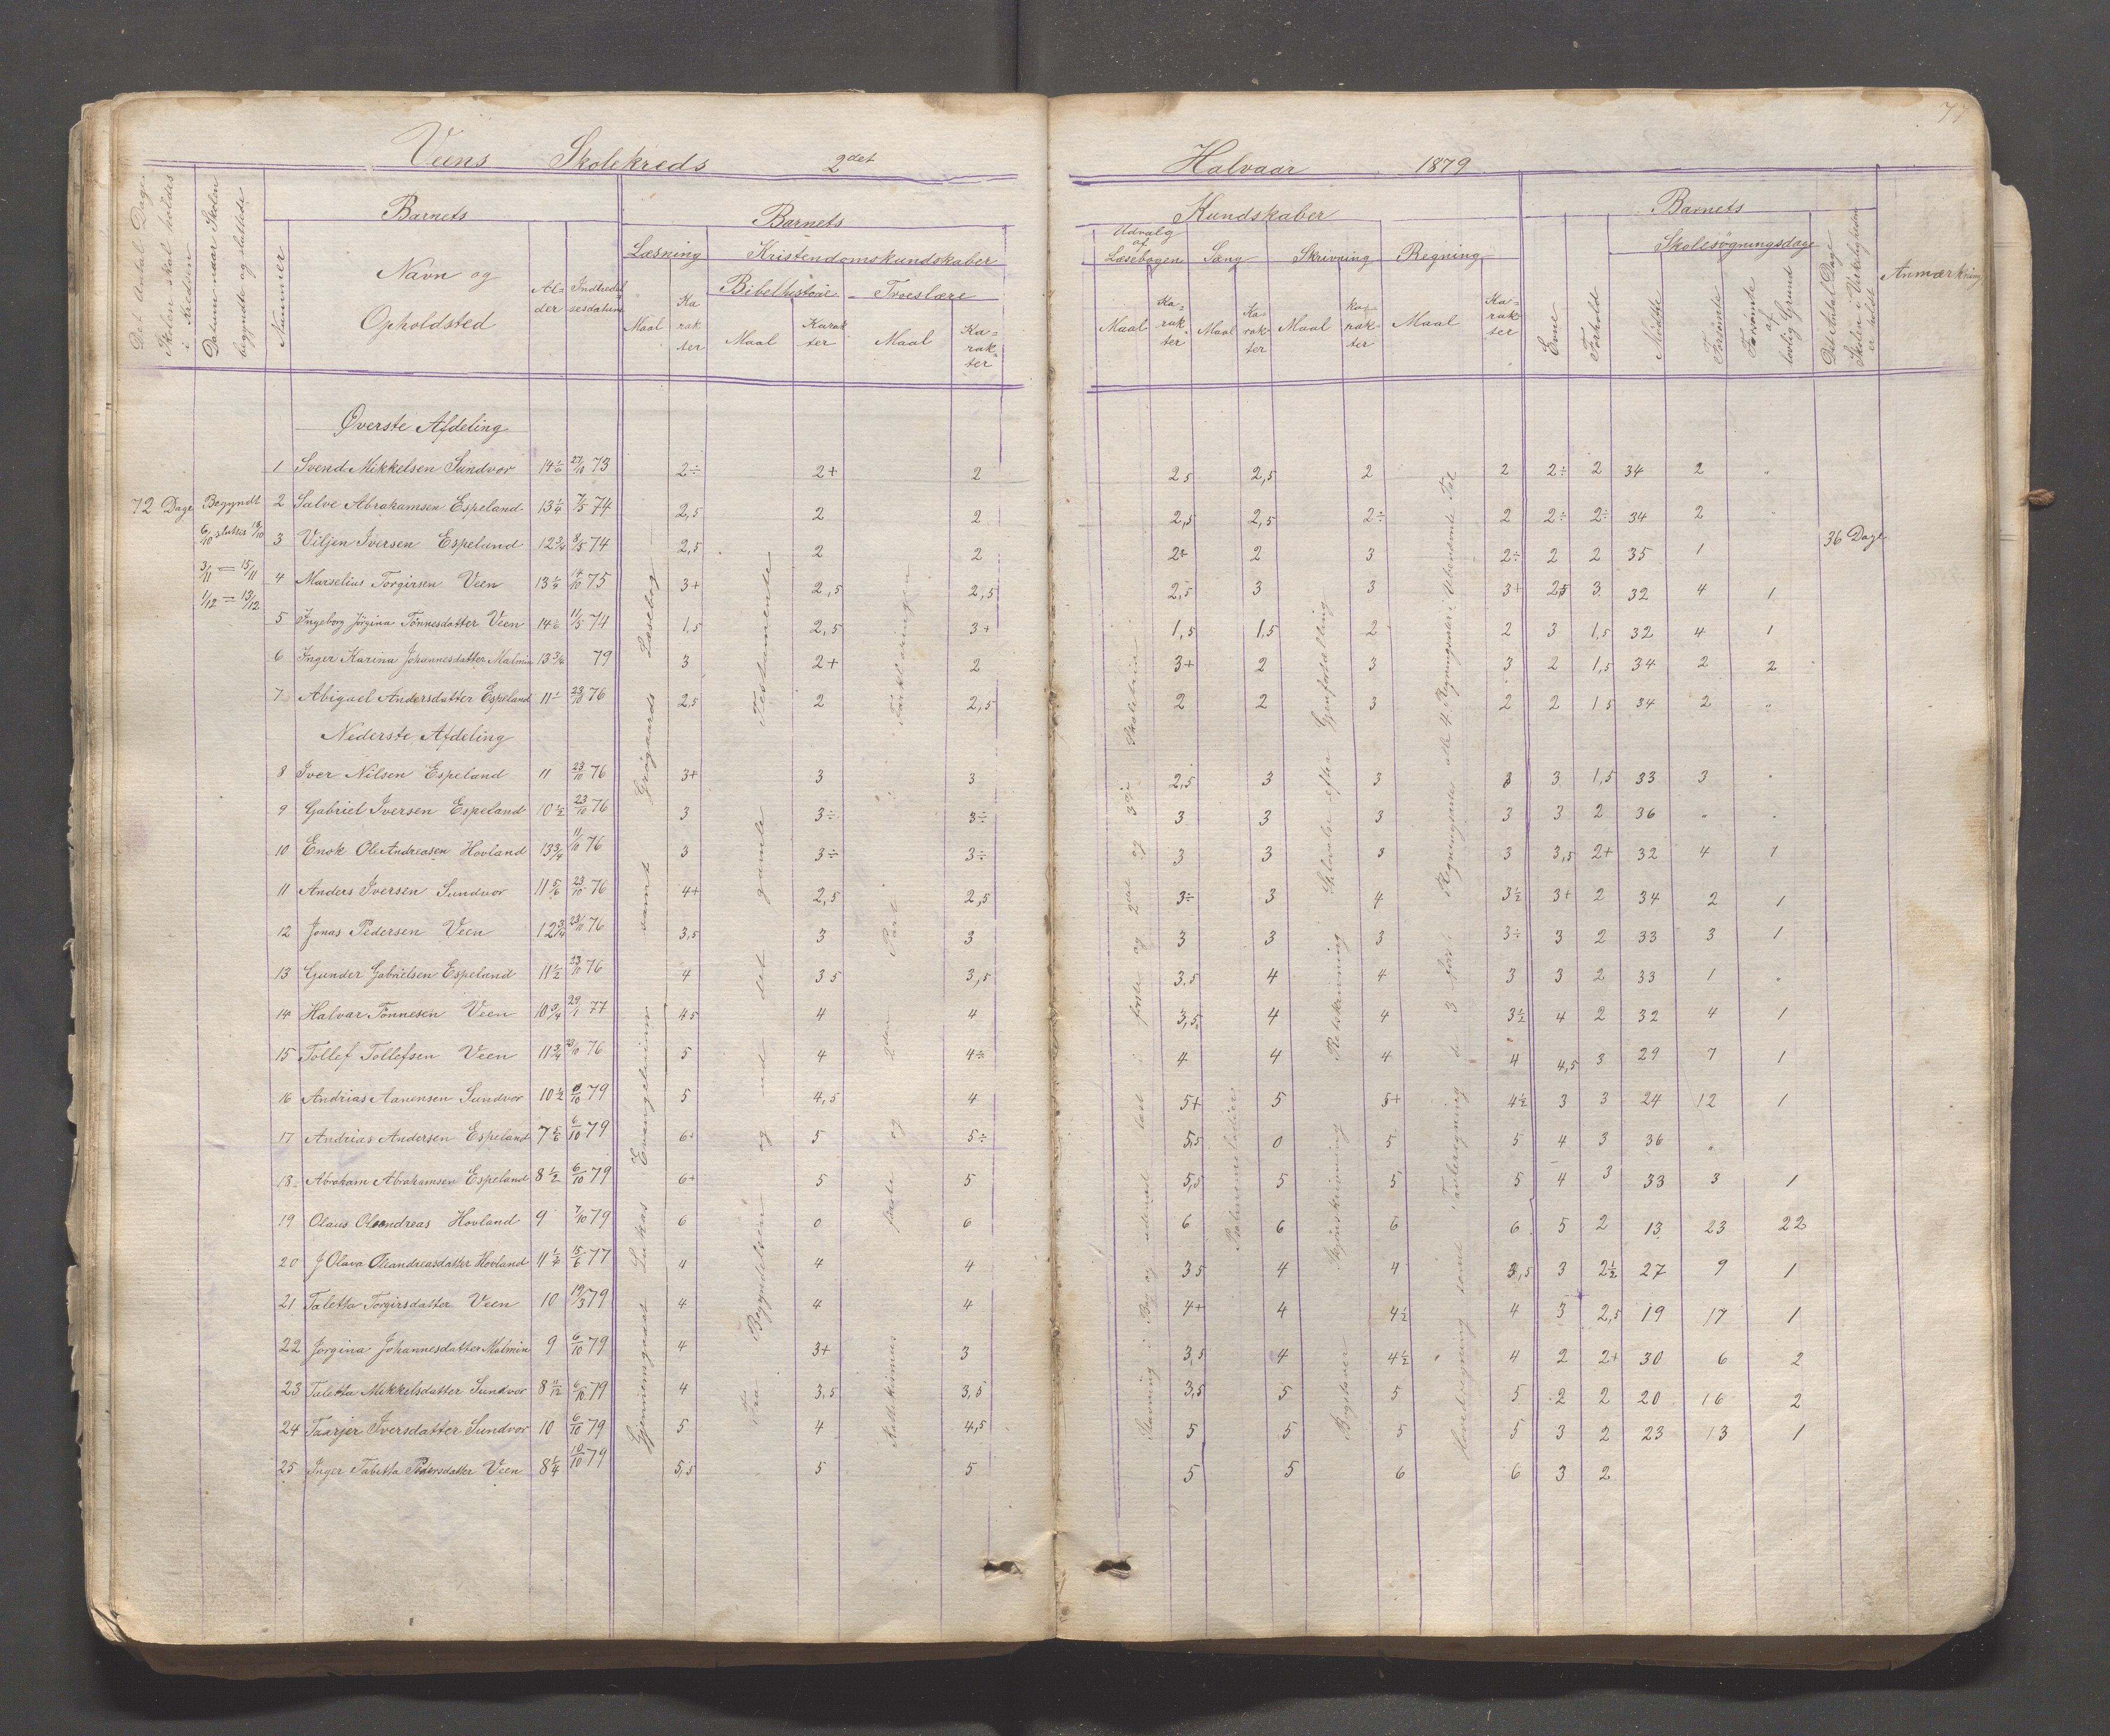 77
Veens Skolekreds 2det Halvaar 1879
Det Antal Dage Skolen skal holdes i Kredsen
Datum naar Skolen begyndte og sluttede
Nummer
Barnets
Navn og Opholdsted
Al-der
Indtrædelsesdatum
Barnets Kundskaber
Læsning
Maal
Karakter
Kristendomskundskaber
Bibelhistorie
Maal
Karakter
Troeslære
Maal
Karakter
Udvalg af Læsebogen
Maal
Karakter
Sang
Maal
Karakter
Skrivning
Maal
Karakter
Regning
Maal
Karakter
Barnets
Evne
Forhold
Skolesøgningsdage
Mødte
Forsømte
Forsømte af lovlig Grund
Det Antal Dage Skolen i Virkeligheden er holdt
Anmærkning
Øverste Afdeling
1 Svend Mikkelsen Sundvor 14 1/6 27/10 73 2÷ 2+ 2 2 5 2,5 2 2 2÷ 2 34 2 "
72 Dage
Begyndt
6/10 sluttes 18/10
3/11 = 15/11
1/12 = 13/12
2 Salve Abrahamsen Espeland 13 1/4 7/5 74 2,5 2 2 2,5 2,5 2÷ 2 2÷ 2÷ 34 2 "
36 Dage
3 Viljen Iversen Espeland 12 3/4 8/5 74 2,5 2 2 2÷ 2 3 2÷ 2 2 35 1
4 Marselius Torgirsen Veen 13 1/4 14/10 75 3+ 2,5 2,5 2,5 3 3 3+ 2,5 3 32 4 1
5 Ingeborg Jørgina Tønnesdatter Veen 14 1/6 11/5 74 1,5 2,5 3+ 1,5 1,5 2 2 3 1,5 32 4 1
6 Inger Karina Johannesdatter Malmin 13 3/4 79 3 2+ 2 3+ 2 3 3 2 1,5 34 2 2
7 Abigael Andersdatter Espeland 11 23/10 76 2,5 2 2,5 2 2 3 2 2 1 5 34 2 "
Nederste Afdeling
8 Iver Nilsen Espeland 11 23/10 76 3+ 3 3 2,5 3 3 3 3 1,5 33 3 "
9 Gabriel Iversen Espeland 10 1/2 23/10 76 3 3÷ 3÷ 3 3 3 3 3 2 36 " "
10 Enok OleAndreasen Hovland 13 3/4 11/10 76 3 3÷ 3÷ 3 3 3 3 3,5 2+ 32 4 1
11 Anders Iversen Sundvor 11 5/6 23/10 76 4+ 2,5 2,5 3÷ 3 4 3 1/2 3+ 2 34 2 1
12 Jonas Pedersen Veen 12 3/4 23/10 76 3,5 3 3 3 3 3 3÷ 3 2 33 3 1
13 Gunder Gabrielsen Espeland 11 1/2 23/10 76 4 3 5 3,5 3,5 4 4 3 3 2 33 1 "
14 Halvar Tønnesen Veen 10 3/4 29/1 77 4 5 4 4 3,5 4 4 3 1/2 4 2 32 4 1
15 Tollef Tollefsen Veen 11 3/4 23/10 76 5 4 4÷ 4 4 4 4 4,5 3 29 7 1
16 Andrias Aanensen Sundvor 10 1/2 8/10 79 5 4,5 4 5+ 5 5+ 4 1/2 3 3 24 12 1
17 Andrias Andersen Espeland 7 5/6 6/10 79 6+ 5 5÷ 5,5 0 5 5 4 3 36 "
18 Abraham Abrahamsen Espeland 8 1/2 6/10 79 6+ 5 5 5,5 5 5 5 4 3 33 3 1
19 Olaus Oleandreas Hovland 9 7/10 79 6 0 6 6 6 6 6 5 2 13 23 22
20 J Olava Oleandreasdatter Hovland 11 1/4 15/6 77 4 4 4 3 5 4 4 3,5 3 2 1/2 27 9 1
21 Taletta Torgirsdatter Veen 10 19/3 79 4 4 4 4+ 4 4 1/2 4 3 2,5 19 17 1
22 Jørgina Johannesdatter Malmin 9 6/10 79 4 3+ 3 3,5 4 4 1/2 4 2 2+ 30 6 2
23 Taletta Mikkelsdatter Sundvor 8 11/12 6/10 79 4 3,5 3,5 3,5 5 5 5 2 2 20 16 2
24 Taarjer Iversdatter Sundvor 10 6/10 79 5 4 4,5 5 5 5 5 3 2 23 13 1
25 Inger Tabetta Pedersdatter Veen 8 1/4 10/10 79 5,5 5 5 5 5 6 6 3 2
Gjennemgaaet Lukas Evangelium samt Grøgaards Læsebog
Fra Begyndelsen og ud det gamle Testamente
Kattekismus første og 2den Part i Forklaringen
Stavning i Bog og udenad læst i første og 2det og 3die Skoletrin
Psalmemelodier
Bogstaver Skjønskrivning Retskrivning Skrivelse efter Gjenfortælling
Hovedregning samt Tavleregning de 3 før Regningsarter alle 4 Regningsarter i Ubenævnte Tal